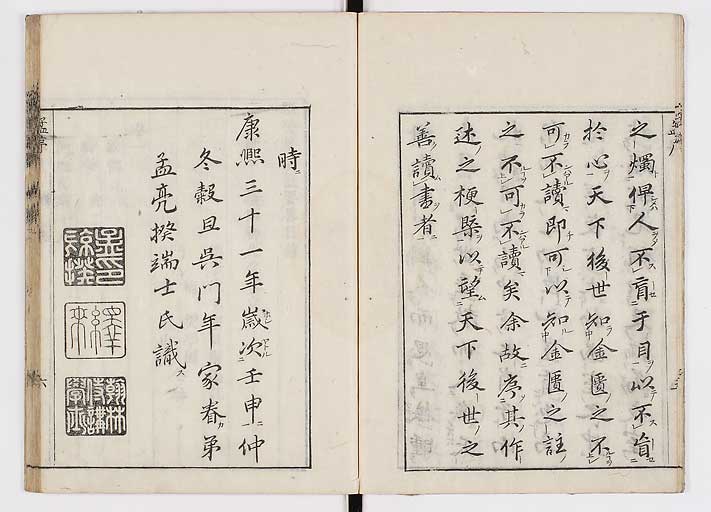 之燭俾人不盲于目以不盲
於心天下後世知金匱之不
可不讀即可以知金匱之註
之不可不讀矣余故序其作
述之梗槩以望天下後世之
善讀書者
時
康熙三十一年歲次壬申仲
冬穀旦吳門年家眷弟
孟亮揆端士氏識
孟亮揆
繹來
翰林侍講學士
六